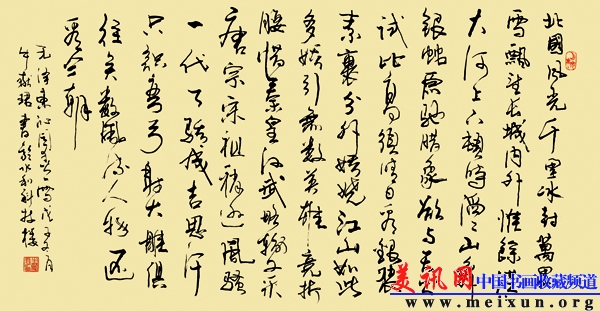 北國風光千里冰封萬里
雪飄望長城内外惟餘莽
大河上下頓時滔滔山舞
銀蛇原馳臘象欲與天公
試比高須晴日看銀裝
素裹分外妖嬈江山如此
多嬌引無數英雄競折
腰惜秦皇漢武略輸文采
唐宗宋祖稍遜風騷
一代天驕成吉思汗
只識彎弓射大雕俱
往矣數風流人物還
看今朝
毛澤東沁園春雪
書於水和新村樓
美讯网 中国书画收藏频道
www.meixun.org